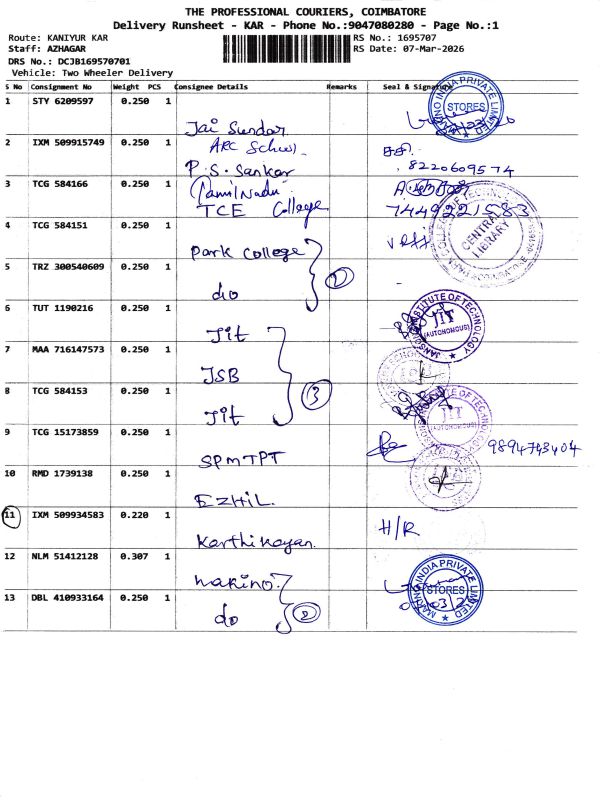 THE PROFESSIONAL COURIERS, COIMBATORE
Delivery Runsheet - KAR - Phone No.:9047080280 - Page No.:1
Route: KANIYUR KAR
RS No.: 1695707
Staff: AZHAGAR
RS Date: 07-Mar-2026
DRS No.: DCJB169570701
Vehicle: Two Wheeler Delivery
S No Consignment No Weight PCS Consignee Details Remarks Seal & Signature
1 STY 6209597 0.250 1
Jai Sundar
MAKINO INDIA PRIVATE LIMITED
STORES
2 IXM 509915749 0.250 1
ARC School
P.S. Sankar
8220609574
3 TCG 584166 0.250 1
Tamilnadu
TCE College
7449221583
4 TCG 584151 0.250 1
Park College
CENTRAL LIBRARY
5 TRZ 300540609 0.250 1
do
2
6 TUT 1190216 0.250 1
Jit
JIT
(AUTONOMOUS)
7 MAA 716147573 0.250 1
JSB
3
8 TCG 584153 0.250 1
Jit
INSTITUTE OF TECHNOLOGY
JIT
(AUTONOMOUS)
9 TCG 15173859 0.250 1
SPMTPT
9894743404
10 RMD 1739138 0.250 1
EZHIL
11 IXM 509934583 0.220 1
Karthikayan.
H/R
12 NLM 51412128 0.307 1
makino
MAKINO INDIA PRIVATE LIMITED
STORES
13 DBL 410933164 0.250 1
do
2